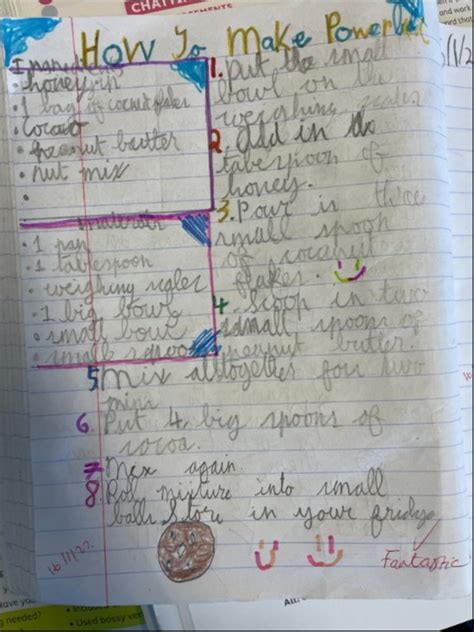 How To Make Powerball
Ingredients
• honey
• 1 bag of coconut flakes
• cocoa
• peanut butter
• nut mix
•
materials
• 1 pan
• 1 tablespoon
• weighing scales
• 1 big bowl
• small bowl
• small spoon
1. Put the small
bowl on the
weighing scales
2. add in two
tablespoon of
honey.
3. Pour in three
small spoon
of coconut
flakes.
4. Scoop in two
small spoons of
peanut butter.
5 Mix alltogether for two
mins
6. Put 4 big spoons of
cocoa.
7 Mix again.
8. Roll mixture into small
balls Store in your fridge
Fantastic
needed?
• Used bossy ver